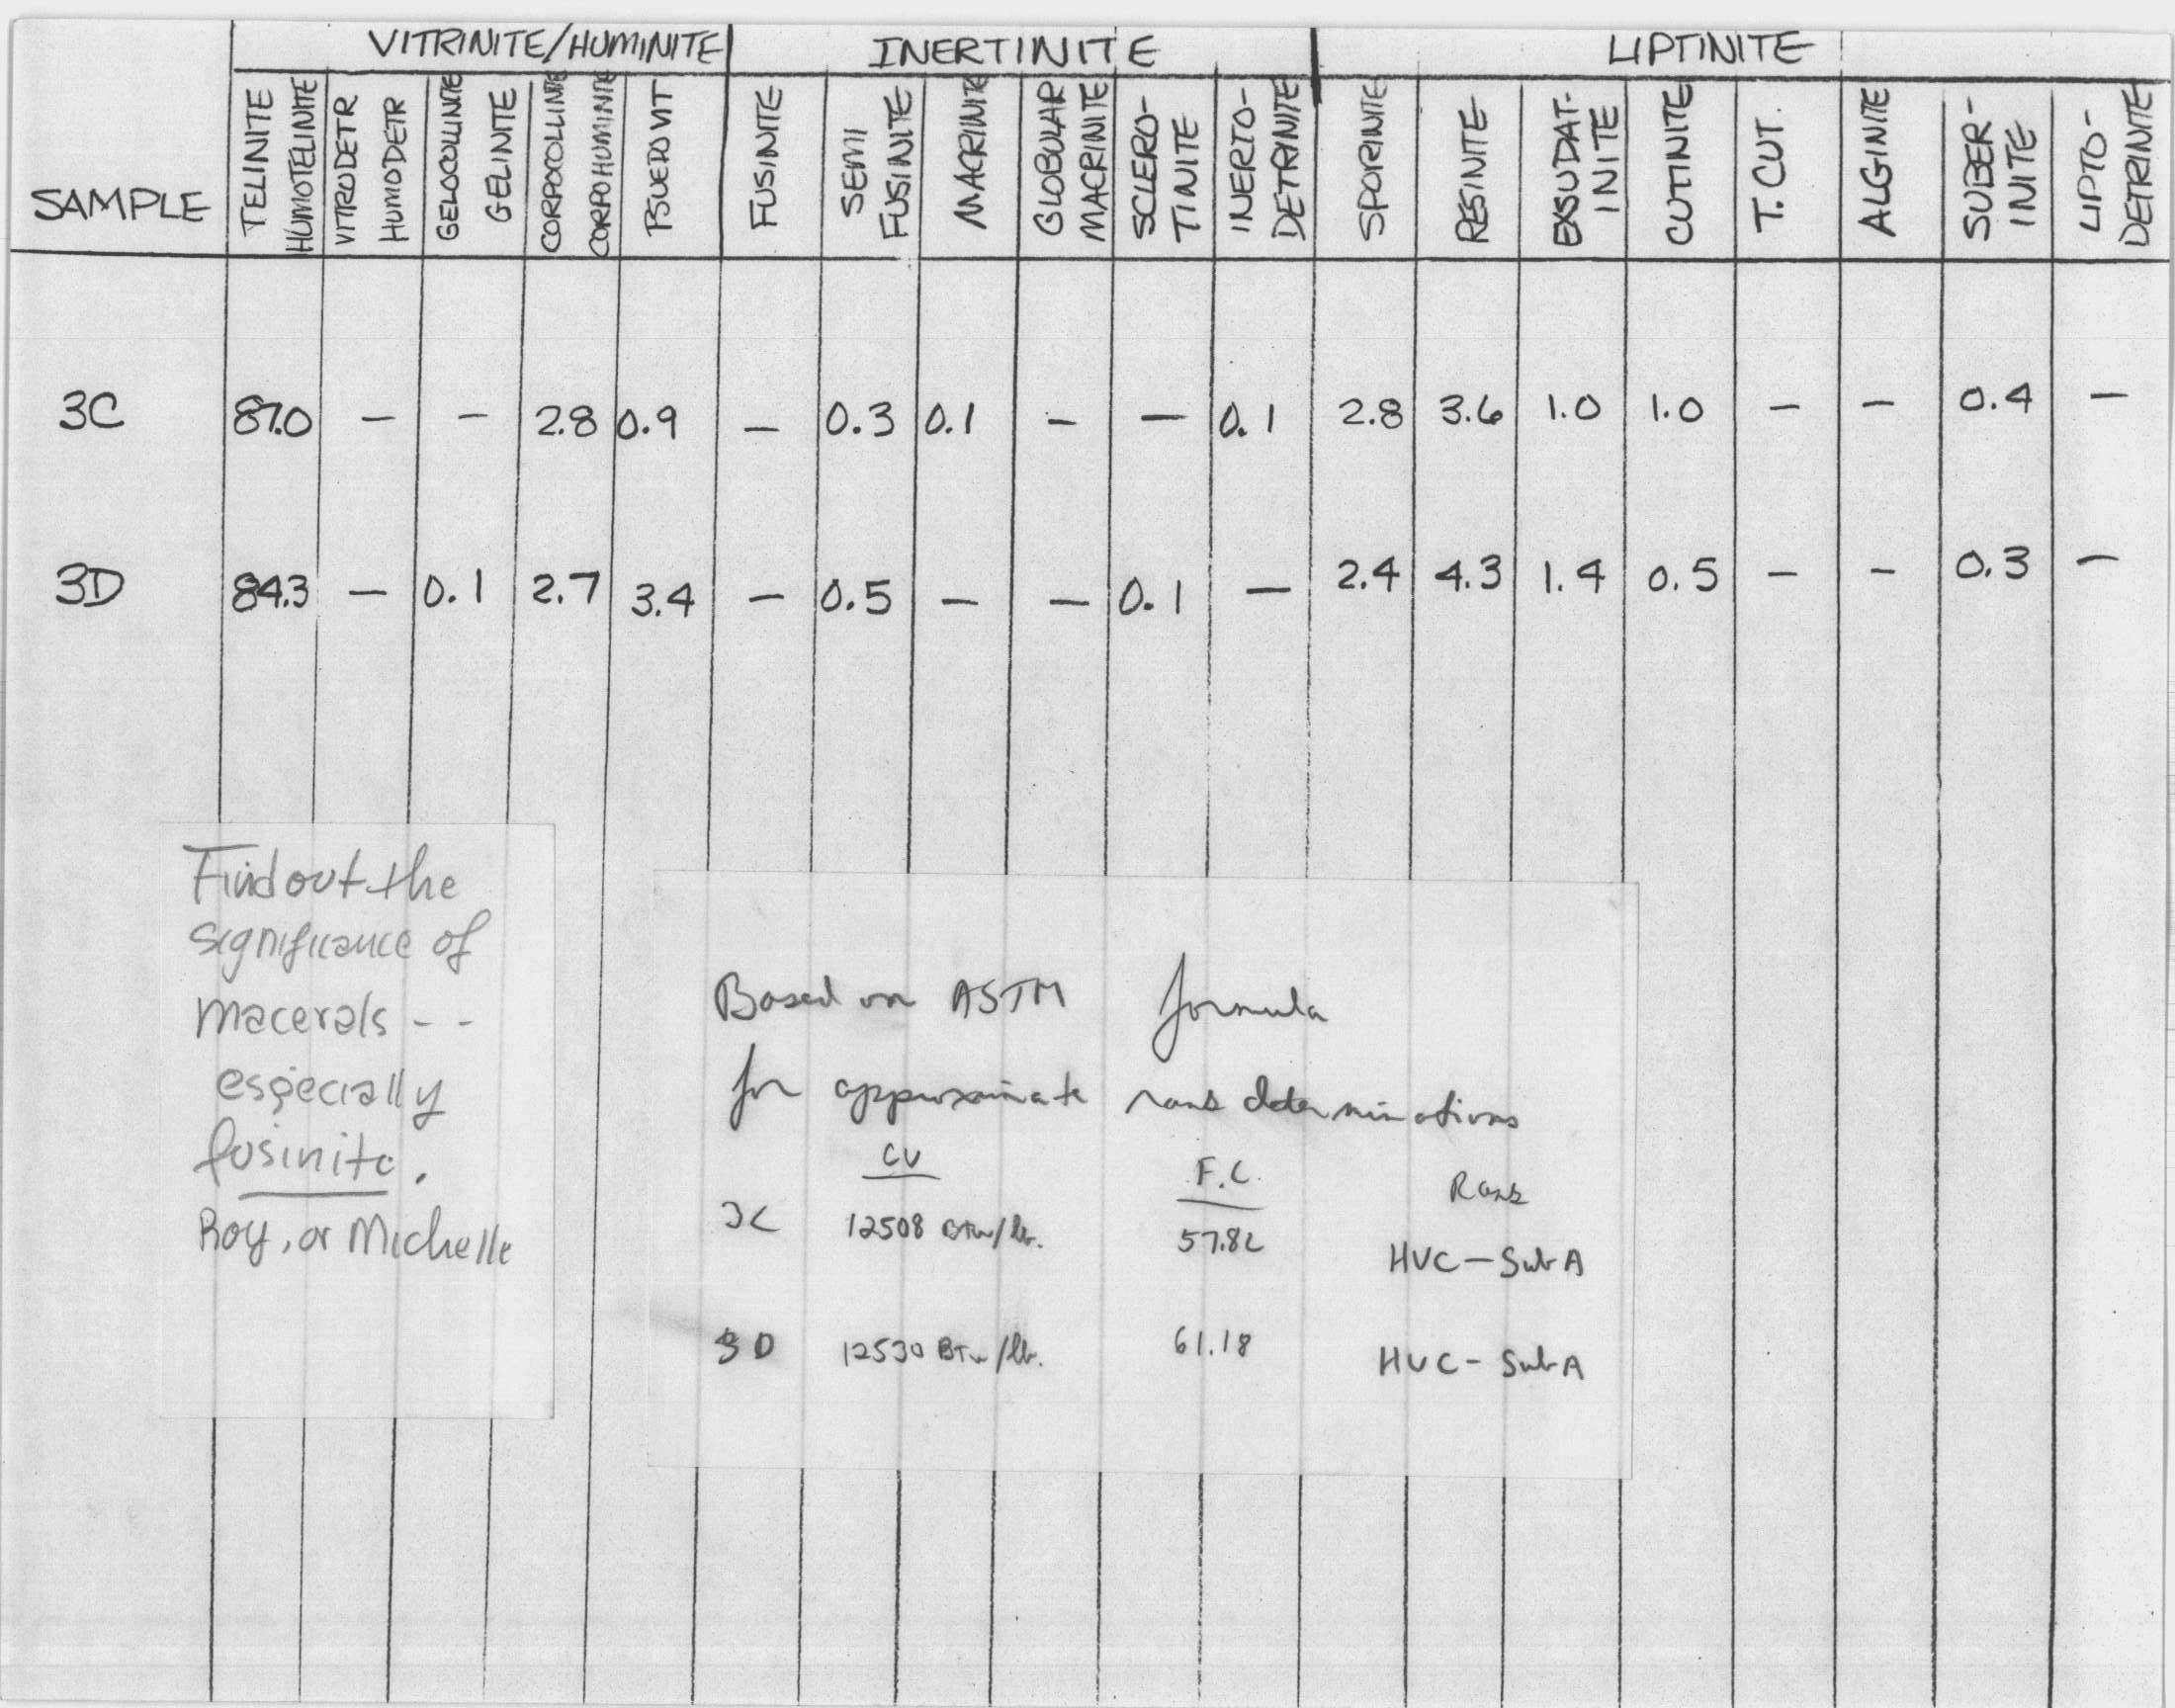 VITRINITE/HUMINITE INERTINITE LIPTINITE
SAMPLE TELINITE HUMOTELINITE VITRODETR HUMODETR GELOCOLLINITE GELINITE CORPOCOLLINITE CORPOHUMINITE PSUEDOVIT FUSINITE SEMI FUSINITE MACRINITE GLOBULAR MACRINITE SCLERO-TINITE INERTO-DETRINITE SPORINITE RESINITE EXSUDAT-INITE CUTINITE T. CUT. ALGINITE SUBER-INITE LIPTO-DETRINITE
3C 87.0 – – 2.8 0.9 – 0.3 0.1 – – 0.1 2.8 3.6 1.0 1.0 – – 0.4 –
3D 84.3 – 0.1 2.7 3.4 – 0.5 – – 0.1 – 2.4 4.3 1.4 0.5 – – 0.3 –
Find out the
significance of
macerals - -
especially
fusinite.
Roy, or Michelle
Based on ASTM formula
for approximate rank determinations
CV F.C. Rank
3C 12508 BTU/lb. 57.82 HVC – Sub A
3D 12530 BTU/lb. 61.18 HVC - Sub A